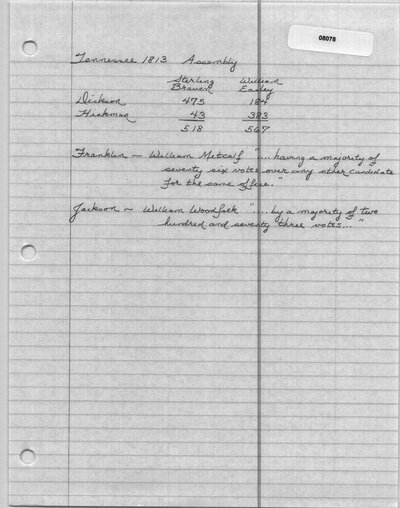 08078
Tennessee 1813 Assembly
Sterling William
Braven Easley
Dickson 475 184
Hickman 43 383
518 567
Franklin ~ William Metcalf "....having a majority of
seventy six votes over any other candidate
for the same office."
Jackson ~ William Woodfolk "....by a majority of two
hundred and seventy three votes..."